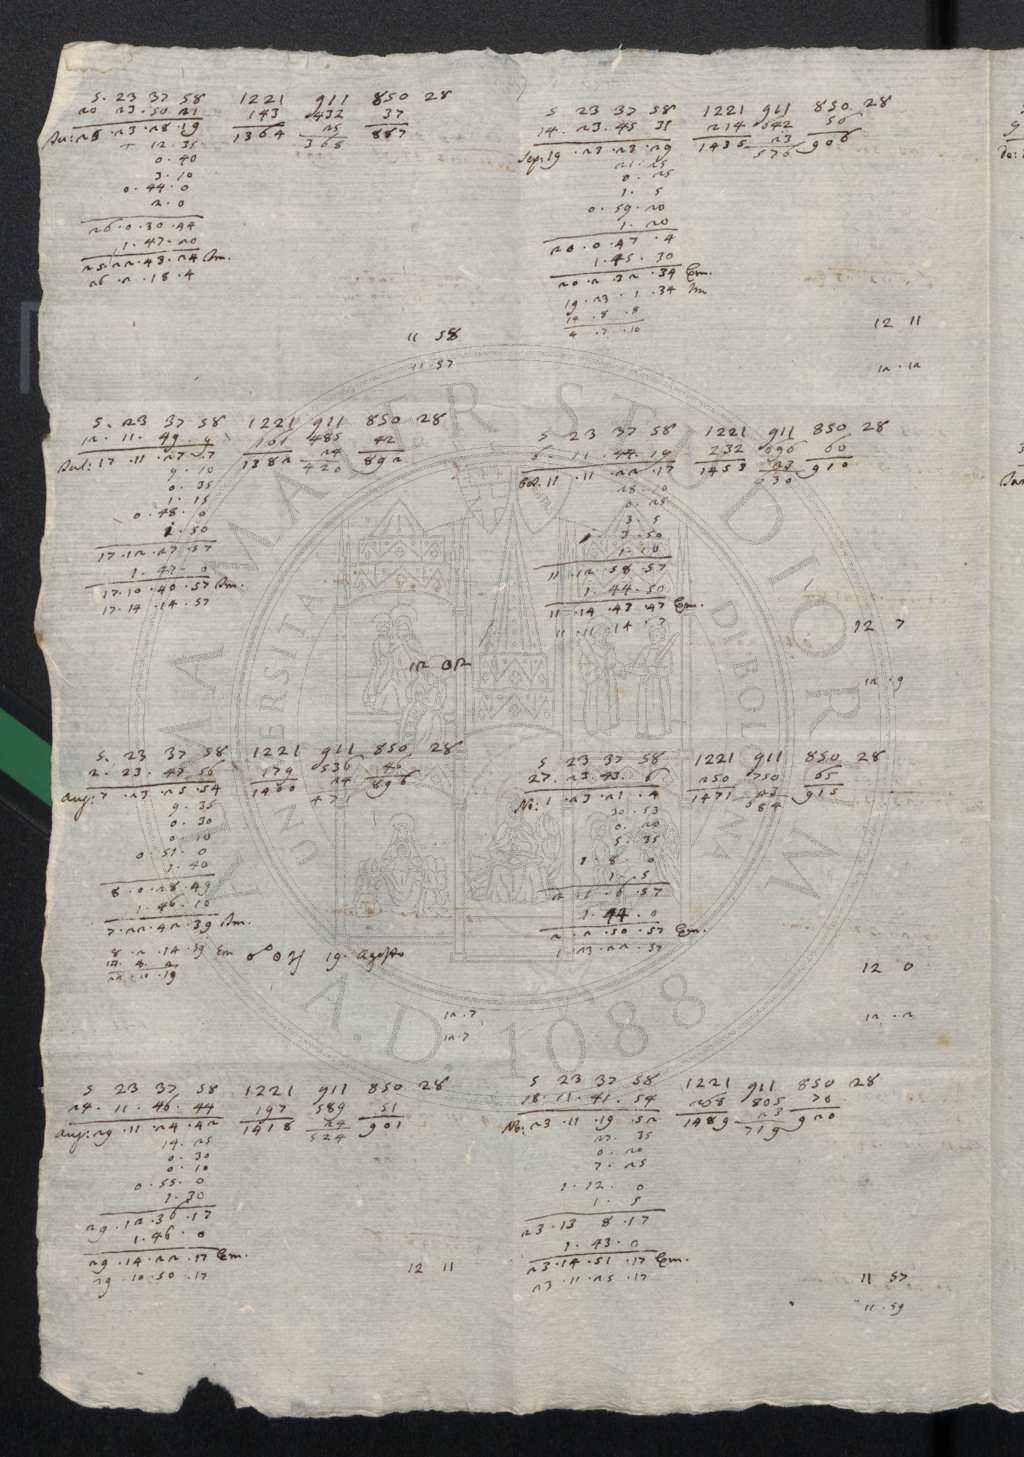 5. 23 37 58 1221 911 850 28
20 23. 50 21 143 432 37
25
1364 365 887
+ 12. 35
0. 40
3. 10
0. 44. 0
2. 0
26. 0. 30. 44
1. 47. 20
25. 22. 43. 24 Im.
26. 2. 18. 4
11 58
11 57
5. 23 37 58 1221 911 850 28
12. 11. 49. 9 161 485 42
24
Iul: 17. 11. 27. 7 1382 420 892
9. 10
0. 35
1. 15
0. 48. 0
1. 50
17. 12. 27. 57
1. 47. 0
17. 10. 40. 57 Im.
17. 14. 14. 57
12 02
5. 23 37 58 1221 911 850 28
2. 23. 47. 56 179 536 46
24
Aug: 7. 23. 25. 54 1400 896
9. 35
0. 30
0. 10
0. 51. 0
1. 40
8. 0. 28. 49
1. 46. 10
7. 22. 42. 39 Im.
8. 2. 14. 59 Em ☌ ☉ ♃ 19. Agosto
22. 10. 19
12. 7
12. 7
5 23 37 58 1221 911 850 28
24. 11. 46. 44 197 589 51
24
Aug: 29. 11. 24. 42 1418 524 901
14. 25
0. 30
0. 10
0. 55. 0
1. 30
29. 12. 36. 17
1. 46. 0
29. 14. 22. 17 Em.
29. 10. 50. 17
12 11
5 23 37 58 1221 911 850 28
14. 23. 45 31 214 642 56
23
Sep: 19. 23. 23. 29 1435 576 906
21. 25
0. 25
1. 5
0. 59. 20
1. 20
20. 0. 47. 4
1. 45. 30
20. 2 32. 34 Em.
19. 23. 1. 34 Im
14. 8. 8
4. 7. 10
12 11
12. 12
5 23 37 58 1221 911 850 28
6. 11. 44. 19 232 696 60
23
11. 11. 22. 17 1453 630 910
28. 10
0. 25
3. 5
1. 3. 50
1. 10
11. 12. 58. 57
1. 44. 50
11. 14. 43. 47 Em.
11. 11. 14. 7
12 7
12. 9
5 23 37 58 1221 911 850 28
27. 23. 43. 6 250 750 65
23
No: 1. 23. 21. 4 1471 684 915
30. 53
0. 20
5. 35
1. 8. 0
1. 5
2. 1. 6. 57
1. 44. 0
2. 2. 50. 57 Em.
1. 23. 22. 57
12 0
12. 2
5 23 37 58 1221 911 850 28
18. 11. 41. 54 268 805 70
23
No: 23. 11. 19. 52 1489 719 920
27. 35
0. 20
7. 25
1. 12. 0
1. 5
23. 13 8. 17
1. 43. 0
23. 14. 51. 17 Em.
23. 11. 25. 17
11 57
11. 59
ALMA MATER STUDIORUM
UNIVERSITÀ DI BOLOGNA
A.D. 1088